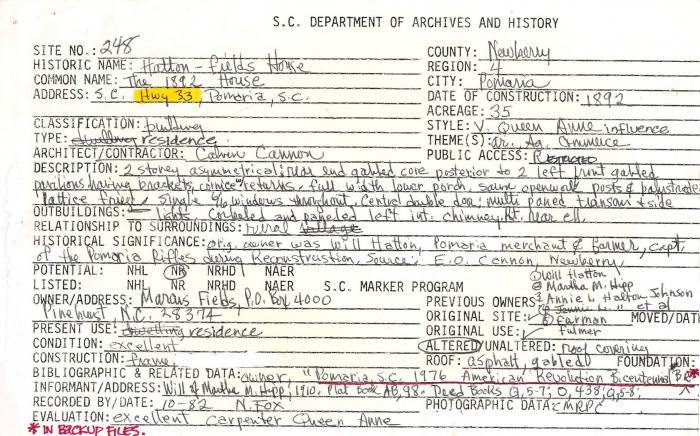 S.C. DEPARTMENT OF ARCHIVES AND HISTORY
SITE NO.: 248
COUNTY: Newberry
HISTORIC NAME: Hatton-Fields House
REGION: 4
COMMON NAME: The 1892 House
CITY: Pomaria
ADDRESS: S.C. Hwy 33, Pomaria, S.C.
DATE OF CONSTRUCTION: 1892
ACREAGE: 35
CLASSIFICATION: building
STYLE: V. Queen Anne influence
TYPE: dwelling residence
THEME(S): ar. Ag. Commerce
ARCHITECT/CONTRACTOR: Calvin Cannon
PUBLIC ACCESS: Restricted
DESCRIPTION: 2 storey asymmetrical; rear end gabled core posterior to 2 left front gabled
pavilions having brackets, cornice returns. full width lower porch, sawn openwork posts & balustrade
lattice frieze, single windows throughout, central double door, multi paned transom & side
OUTBUILDINGS: lights. Corbeled and paneled left int. chimney, Rt. rear ell.
RELATIONSHIP TO SURROUNDINGS: rural village
HISTORICAL SIGNIFICANCE: orig. owner was Will Hatton, Pomaria merchant & farmer, capt.
of the Pomaria Rifles during Reconstruction, Source: E.O. Cannon, Newberry
POTENTIAL: NHL NR NRHD NAER
LISTED: NHL NR NRHD NAER S.C. MARKER PROGRAM
OWNER/ADDRESS: Marcus Fields, P.O. Box 4000
Pinehurst N.C. 28374
PREVIOUS OWNERS: ① Will Hatton
② Martha M. Hipp
③ Annie L. Halton Johnson
④ Jennie L. " et al
ORIGINAL SITE: ✓ ⑤ Earman MOVED/DAT
PRESENT USE: dwelling residence
ORIGINAL USE: ✓ Fulmer
CONDITION: excellent
ALTERED/UNALTERED: roof covering
CONSTRUCTION: frame
ROOF: asphalt, gabled FOUNDATION:
BIBLIOGRAPHIC & RELATED DATA: owner, "Pomaria S.C. 1976 American Revolution Bicentennial *
INFORMANT/ADDRESS: Will & Martha M. Hipp, 1910. Plat Book AB, 98. Deed Books Q, 5-7; O, 438; Q, 5-8.
RECORDED BY/DATE: 10-82 N. Fox
PHOTOGRAPHIC DATA: CMRPC
EVALUATION: excellent Carpenter Queen Anne
* IN BACKUP FILES.